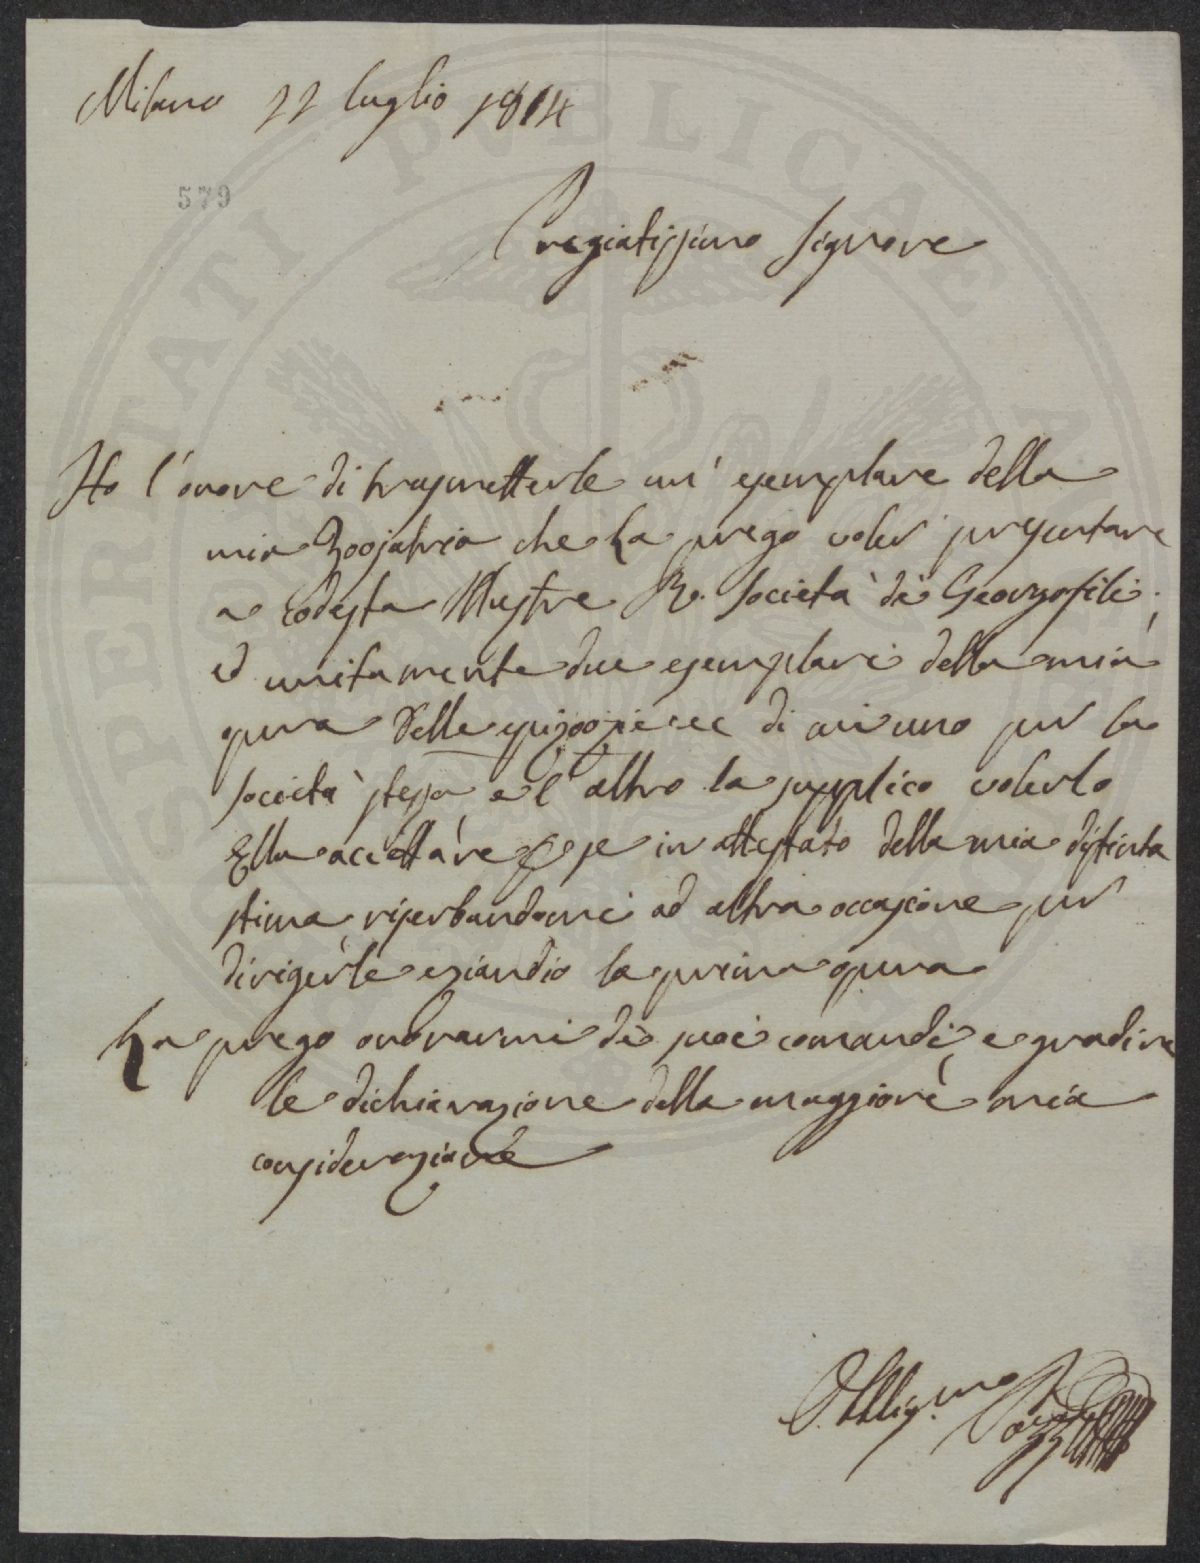 Milano 22 luglio 1814
579
Pregiatissimo Signore
Ho l'onore di trasmetterle un' esemplare della
mia Zoojatria che La prego voler presentare
a codesta Illustre R. Società dè Georgofili
ed unitamente due esemplari della mia
opera Delle epizoozie ec di cui uno per la
Società stessa e l'altro la supplico volerlo
Ella accettare per se in attestato della mia distinta
stima, riserbandomi ad altra occasione per
dirigerle eziandio la prima opera
La prego onorarmi dè suoi comandi e gradire
le dichiarazione della maggiore mia
considerazione
Obbligmo Pozzi
SPERITATI PVBLICAE